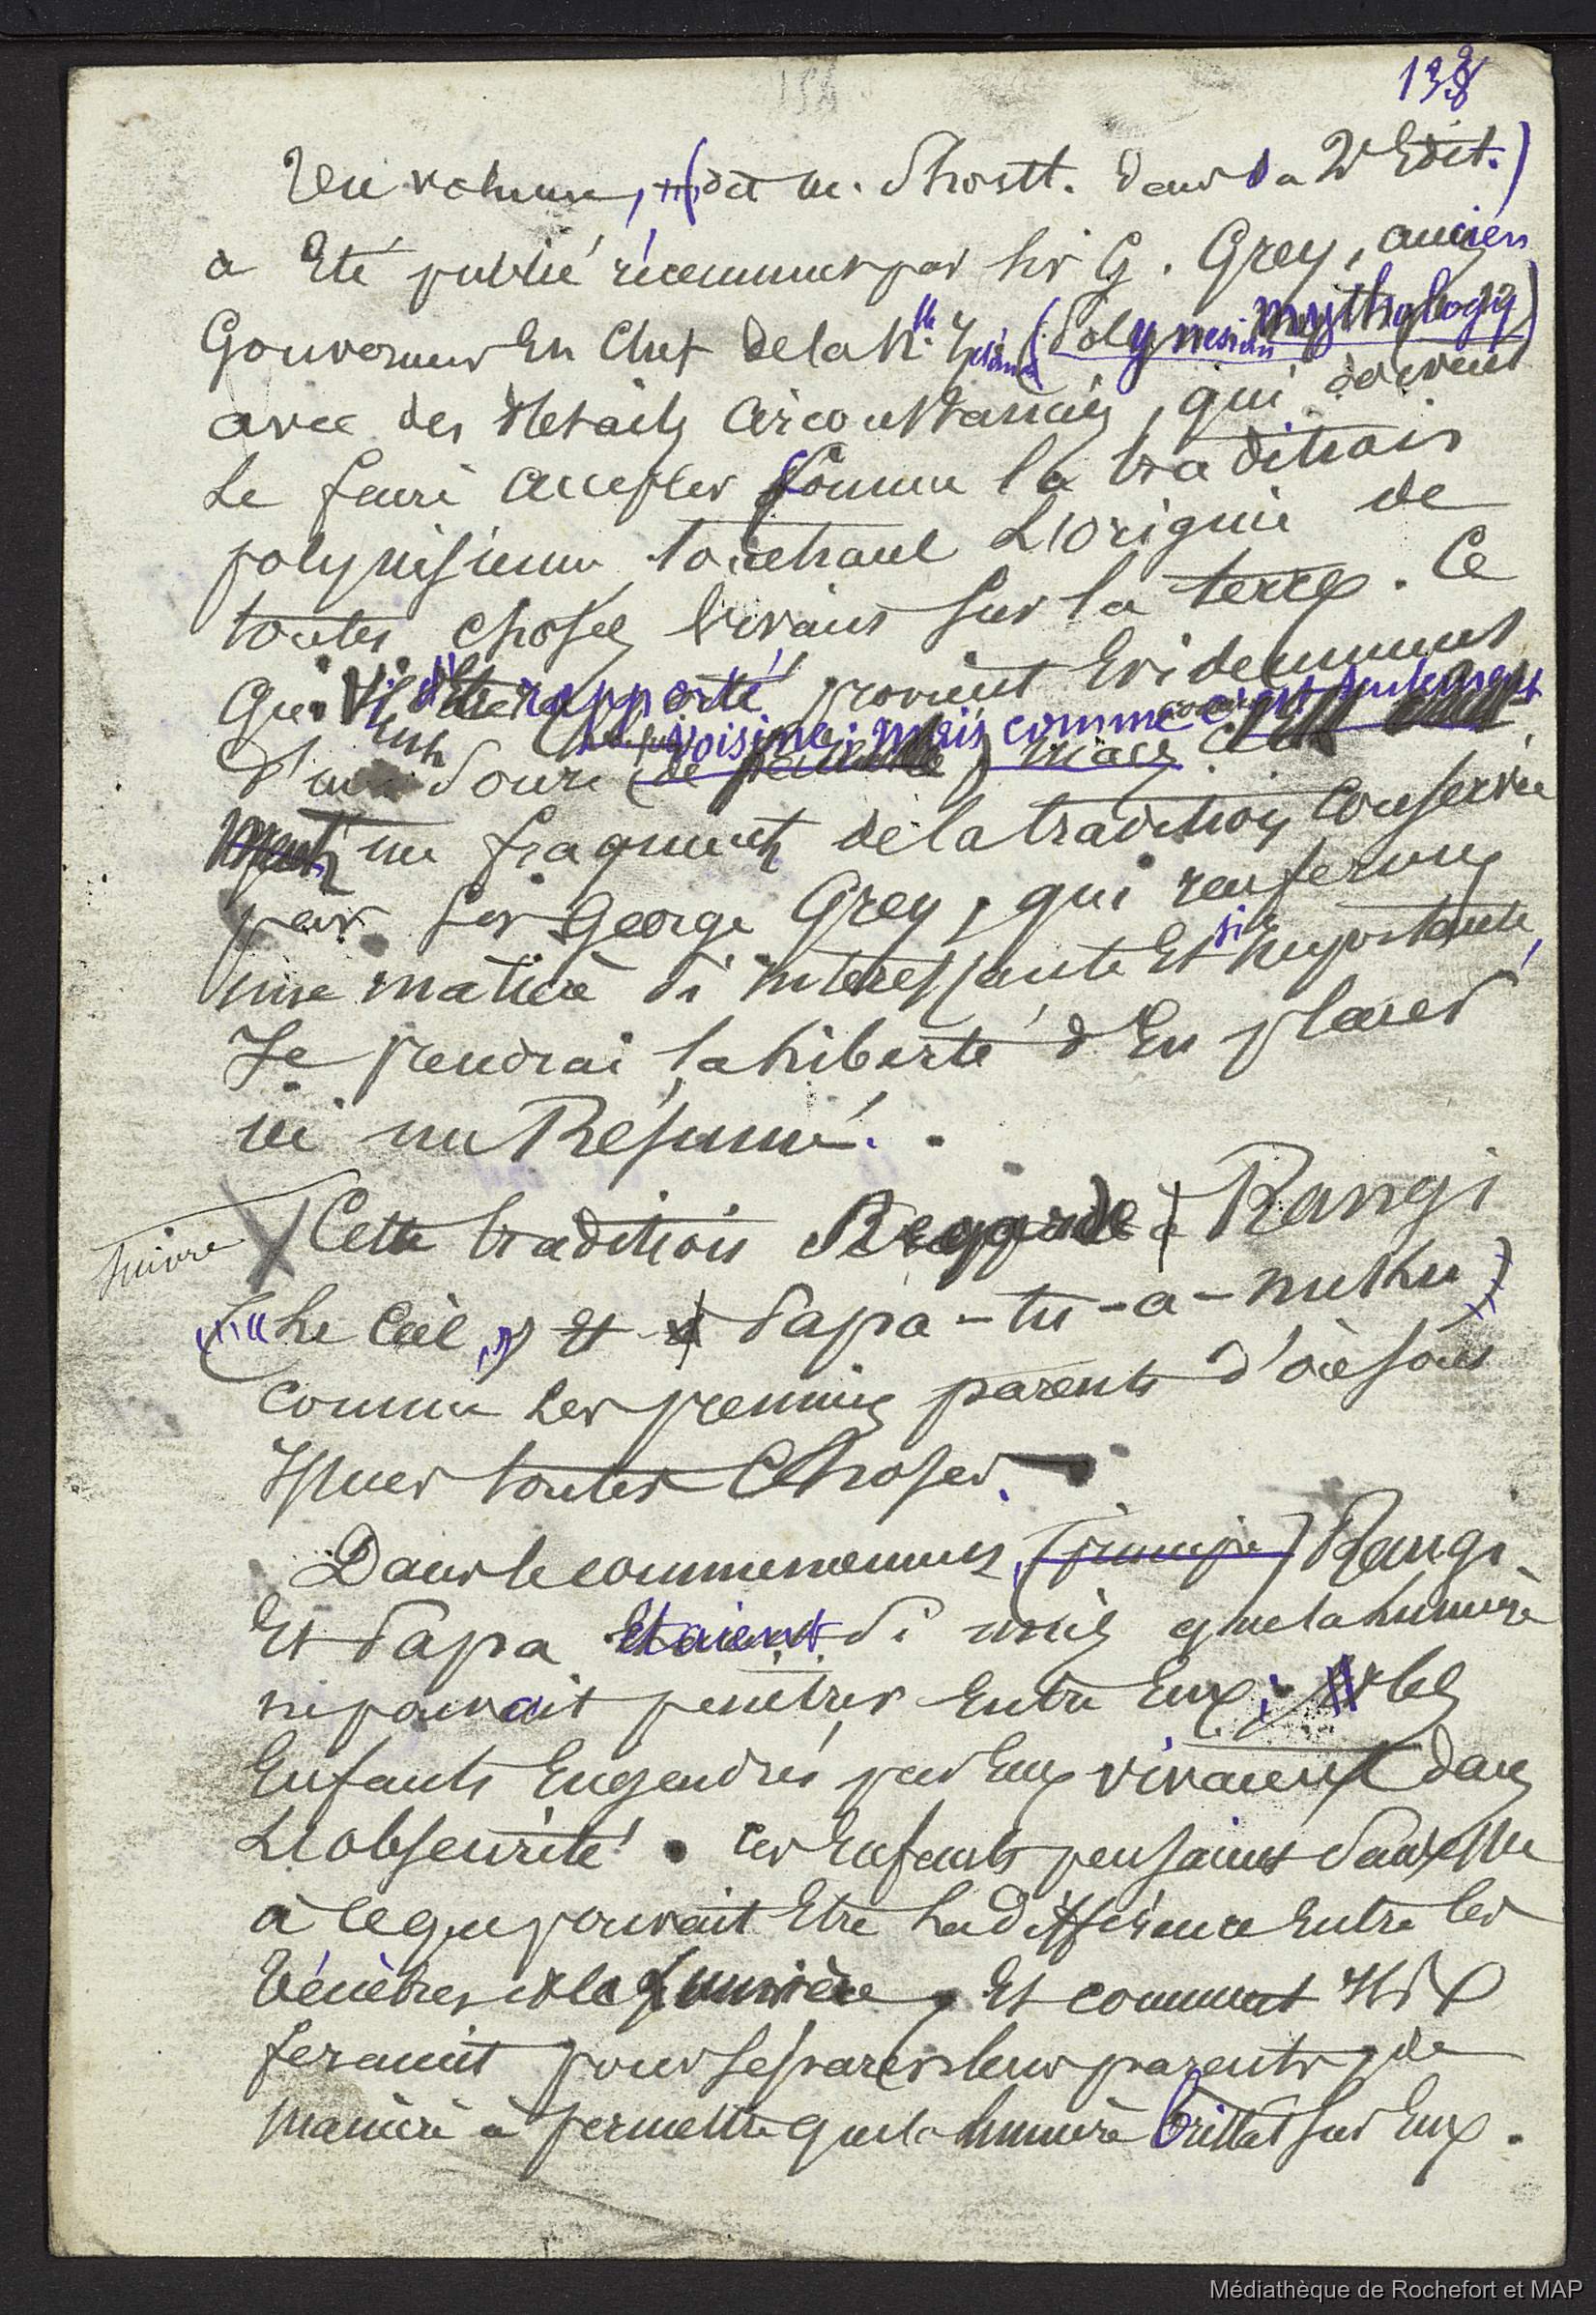 138
Un volume, (dit M. Shortt. dans sa 2e Edit.)
a Eté publié récemment par Sir G. Grey, ancien
Gouverneur En Chef de la Nlle Zélande (Polynesian mythology)
avec des détails circonstanciés, qui doivent
le faire accepter comme la tradition
polynisienne touchant L'origine de
toutes choses vivant sur la terre. Ce
qui rapporté provient Evidemment
d'une source voisine; mais comme c'est seulement
un fragment de la tradition conservée
par Sir George Grey, qui renferme
une matière si intéressante et si importante,
Je prendrai la liberté d'En placer
ici un Résumé.
suivre
Cette tradition Regarde Rangi
(le Ciel) et Papa-tu-a-nuku
comme les premiers parents d'où sont
issues toutes Choses.
Dans le commencement, (principe) Rangi
Et Papa Etaient si unis que la lumière
ne pouvait penétrer Entre Eux; les
Enfants Engendrés par Eux vivaient dans
L'obscurité. Ces Enfants pensaient sans cesse
à ce que pouvait Etre la différence Entre les
ténèbres et la Lumière, Et comment Ils
feraient pour séparer leurs parents, de
manière à permettre que la lumière brillat sur Eux.
Médiathèque de Rochefort et MAP